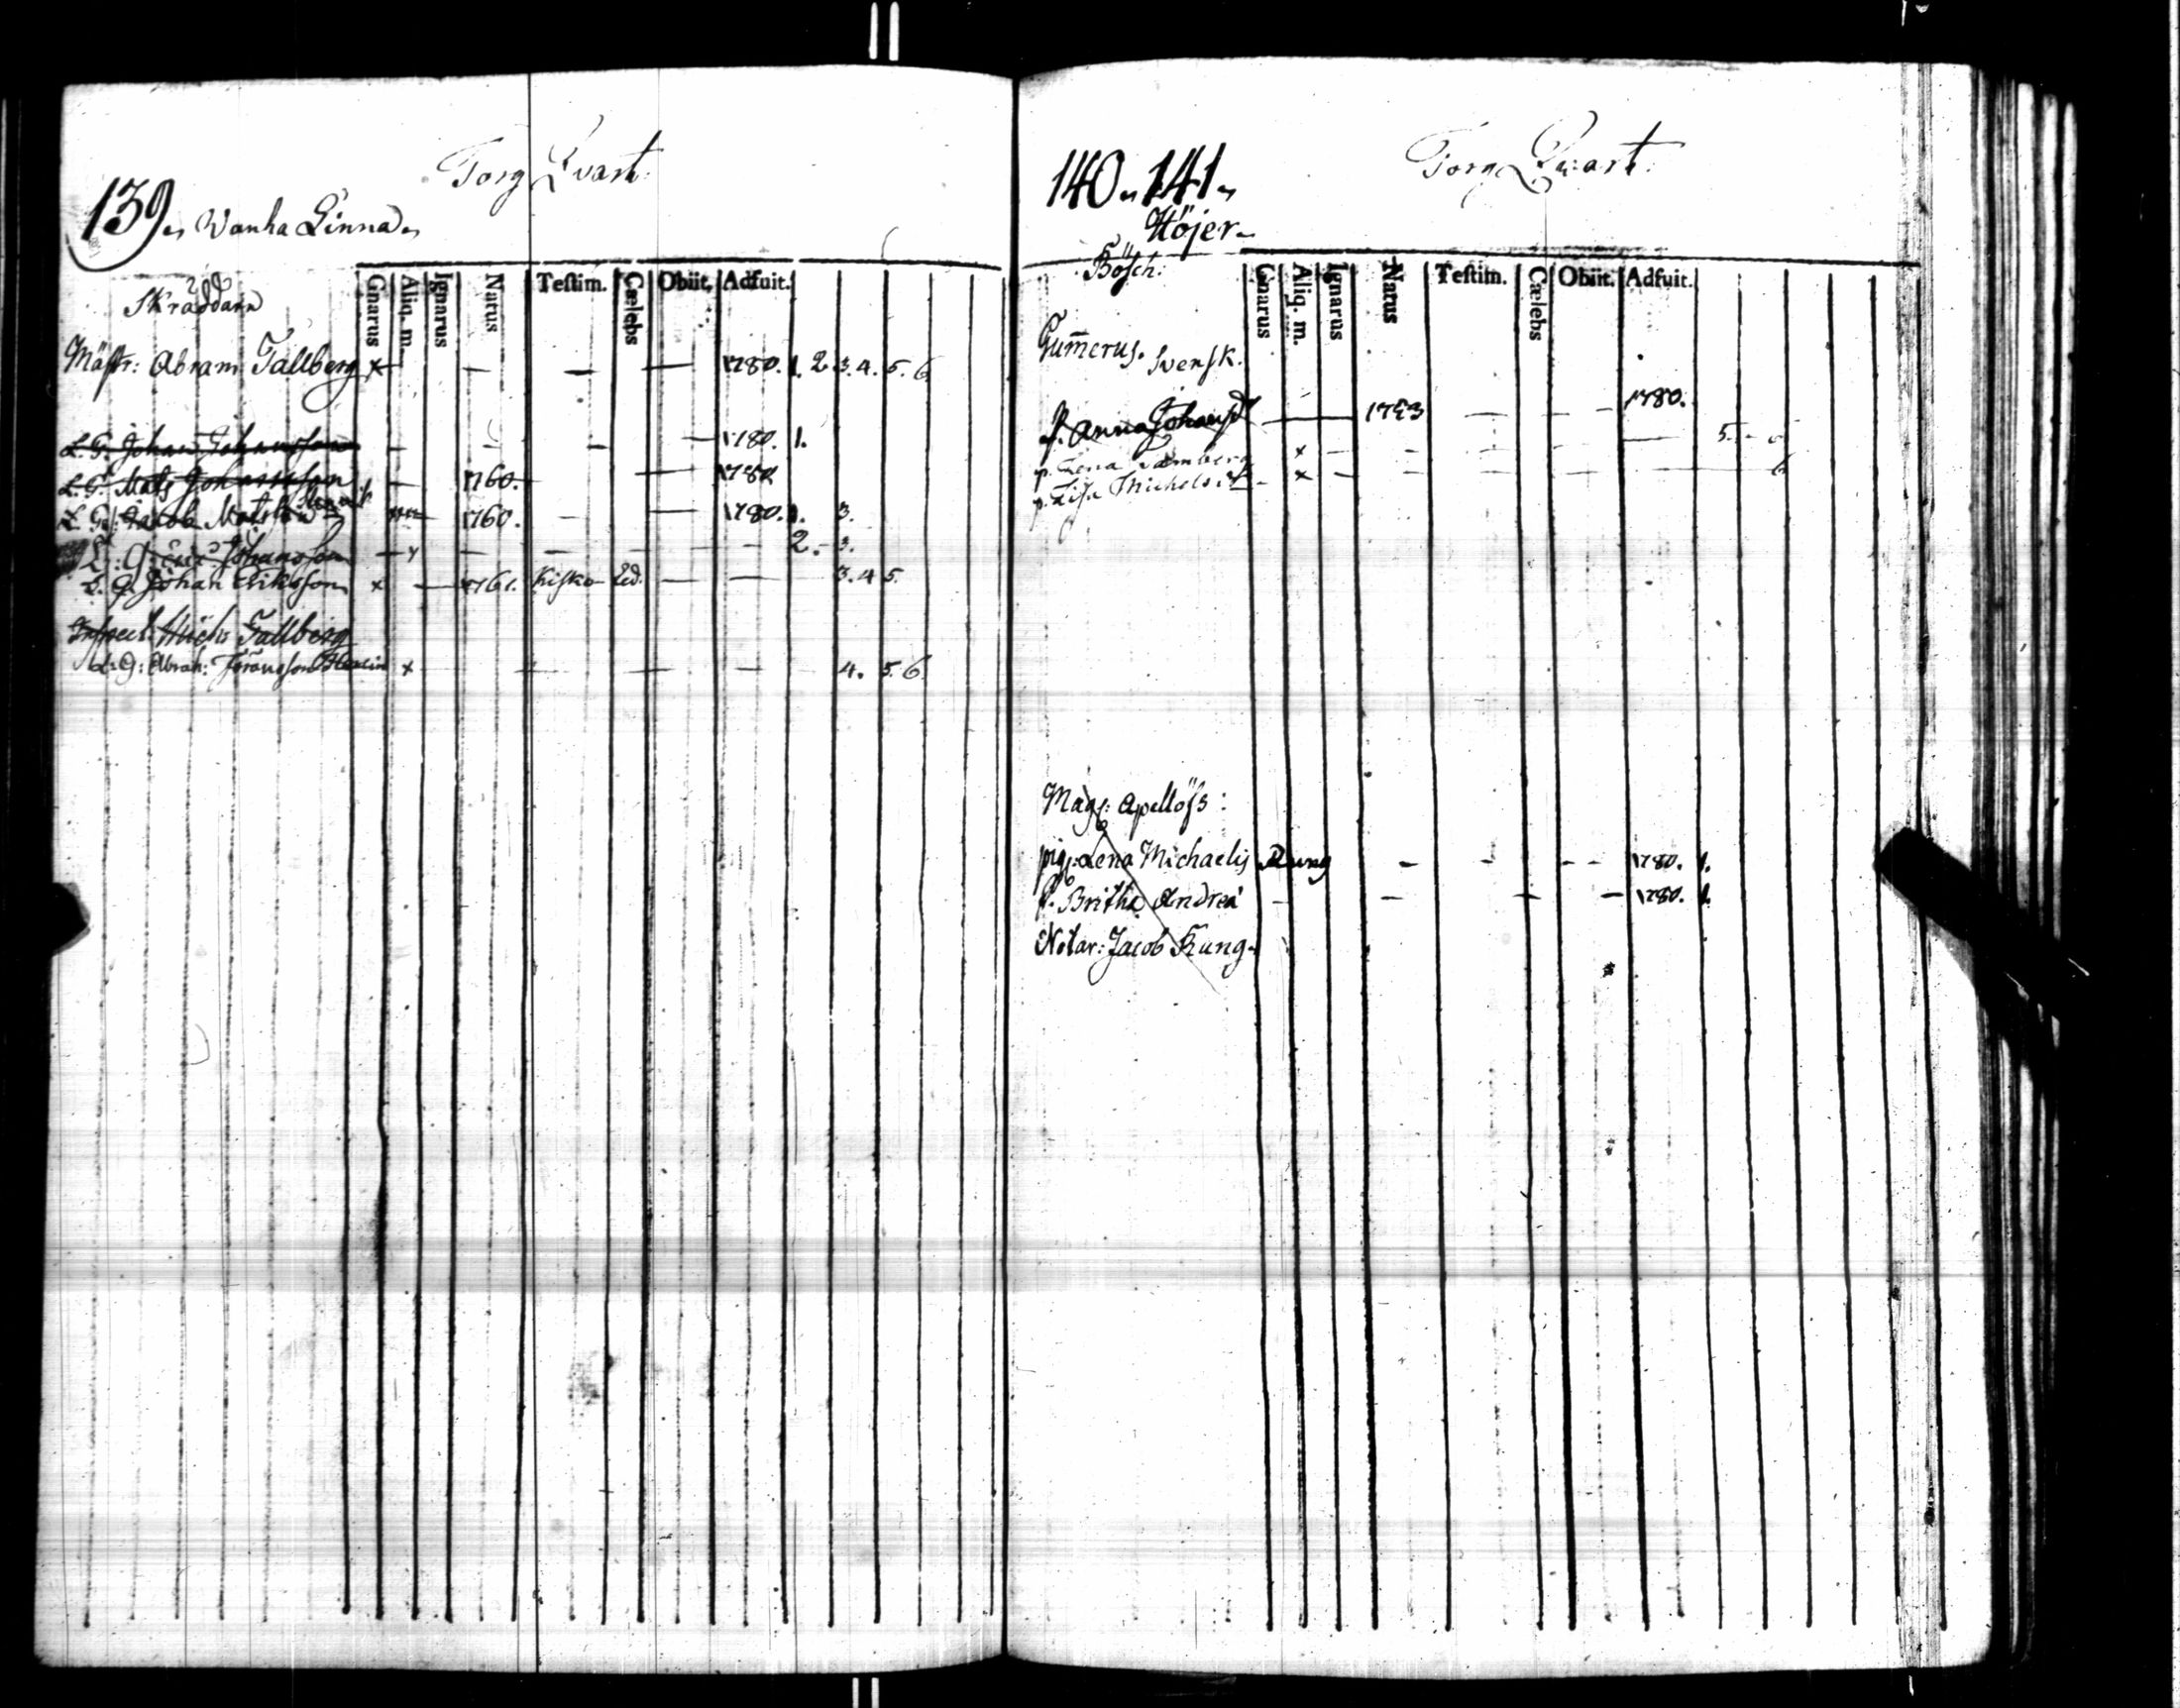 Torg Qvart:
139. Wanha Linna
Skräddare
Gnarus Aliq. m. Ignarus Natus Testim. Cælebs Obiit. Adfuit.
Mästr: Abram Tallberg x — — — 1780. 1. 2 3. 4. 5. 6.
L. G. Johan Johansson — — — — 1780. 1.
L. G. Mats Johansson — 1760. — 1780
L. G. Jacob Matsson 1760. — — 1780. 1. 3.
L: G: Johansson — x — — — — — 2. - 3.
L. G. Johan Eriksson x — 1761. Kisko Led. — — 3. 4 5.
Mich: Tallberg
L: G: Abrah: x — — — 4. 5. 6.
Torg Qvart:
140. 141.
Höjer
Bösch:
Gnarus Aliq. m. Ignarus Natus Testim. Cælebs Obiit. Adfuit.
Gum̄erus. Svensk.
p. Anna Johansd — 1753 — — - 1780.
p. Lena x - - - - — 5. - 6
p. Lisa Michelsd - x - - - — 6
Mag: Apellöfs:
pig: Lena Michaelis Rung - - - - 1780. 1.
p. Britha Andreæ - - - - 1780. 1.
Notar: Jacob Kung